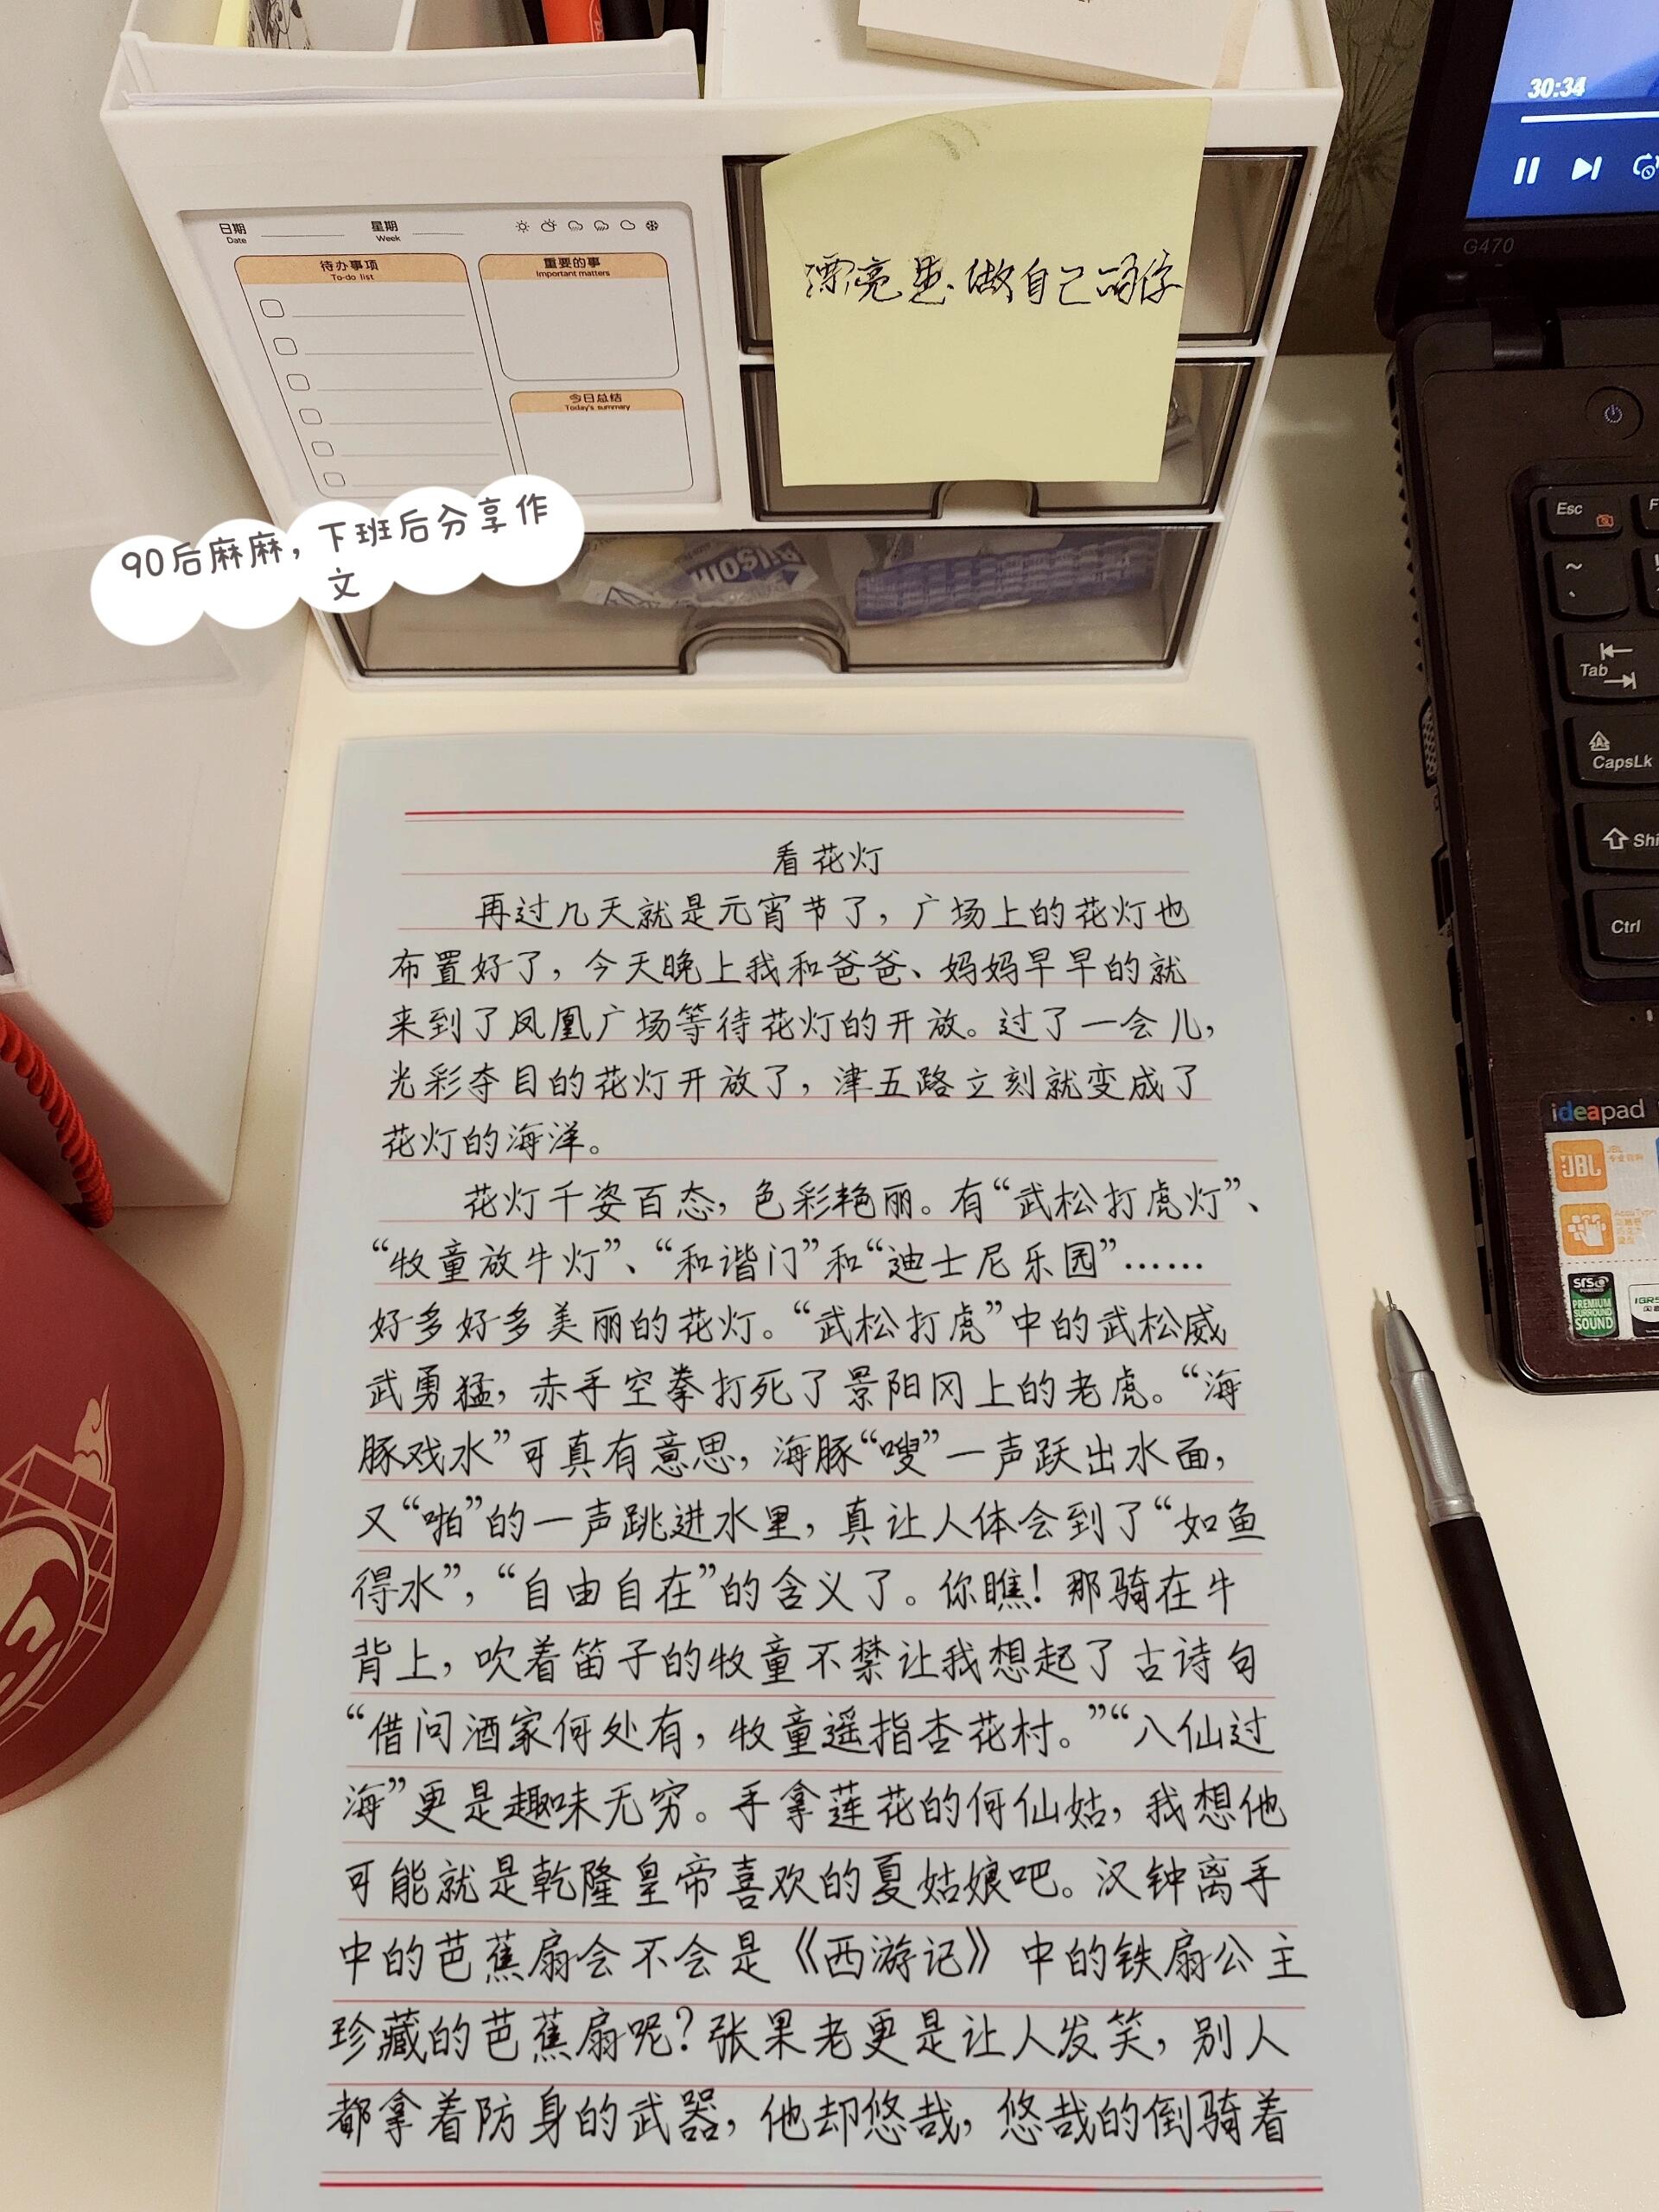 30:34
G470
日期
Date
星期
Week
待办事项
To-do list
重要的事
Important matters
今日总结
Today's summary
漂亮是做自己的
90后麻麻，下班后分享作
文
Esc
Tab
CapsLk
Shi
Ctrl
ideapad
JBL
SRS
PREMIUM
SURROUND
SOUND
看花灯
再过几天就是元宵节了，广场上的花灯也
布置好了，今天晚上我和爸爸、妈妈早早的就
来到了凤凰广场等待花灯的开放。过了一会儿，
光彩夺目的花灯开放了，津五路立刻就变成了
花灯的海洋。
花灯千姿百态，色彩艳丽。有“武松打虎灯”、
“牧童放牛灯”、“和谐门”和“迪士尼乐园”……
好多好多美丽的花灯。“武松打虎”中的武松威
武勇猛，赤手空拳打死了景阳冈上的老虎。“海
豚戏水”可真有意思，海豚“嗖”一声跃出水面，
又“啪”的一声跳进水里，真让人体会到了“如鱼
得水”，“自由自在”的含义了。你瞧！那骑在牛
背上，吹着笛子的牧童不禁让我想起了古诗句
“借问酒家何处有，牧童遥指杏花村。”“八仙过
海”更是趣味无穷。手拿莲花的何仙姑，我想他
可能就是乾隆皇帝喜欢的夏姑娘吧。汉钟离手
中的芭蕉扇会不会是《西游记》中的铁扇公主
珍藏的芭蕉扇呢？张果老更是让人发笑，别人
都拿着防身的武器，他却悠哉，悠哉的倒骑着